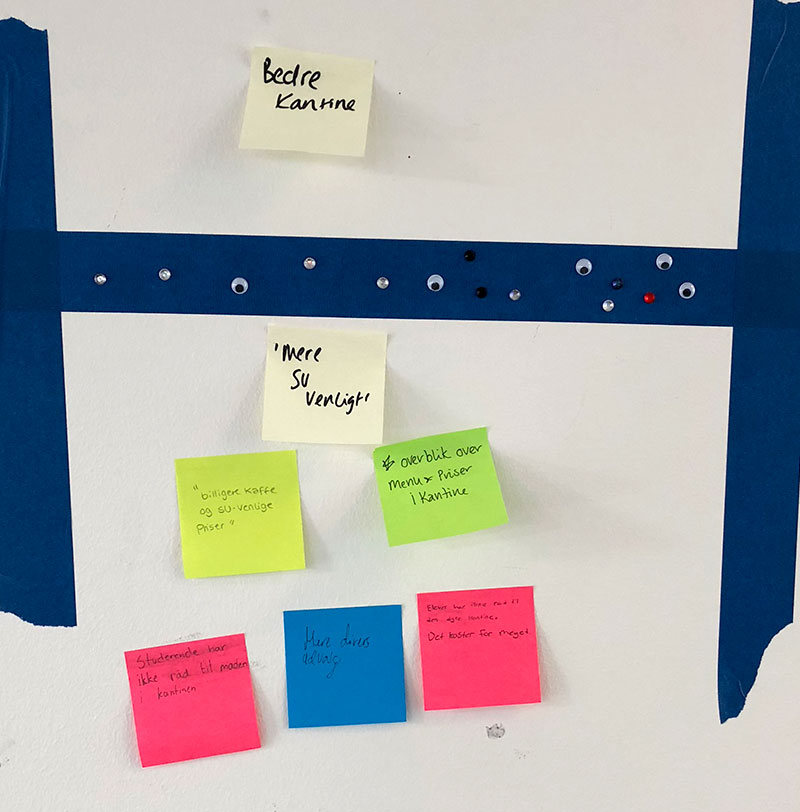 Bedre
Kantine
'mere
SU
venligt'
"billigere kaffe
og SU-venlige
Priser"
overblik over
menu & Priser
i Kantine
Studerende har
ikke råd til maden
i kantinen
Mere divers
udvalg
Elever har ikke råd til
den kantine.
Det koster for meget